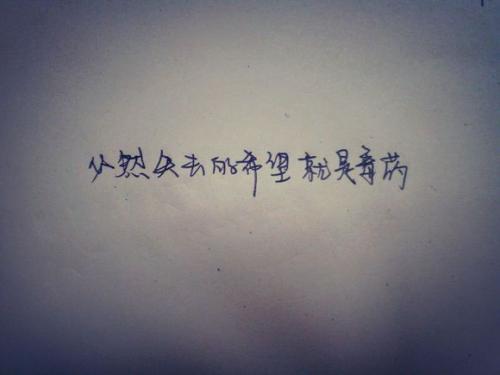 必然失去的希望就是毒药